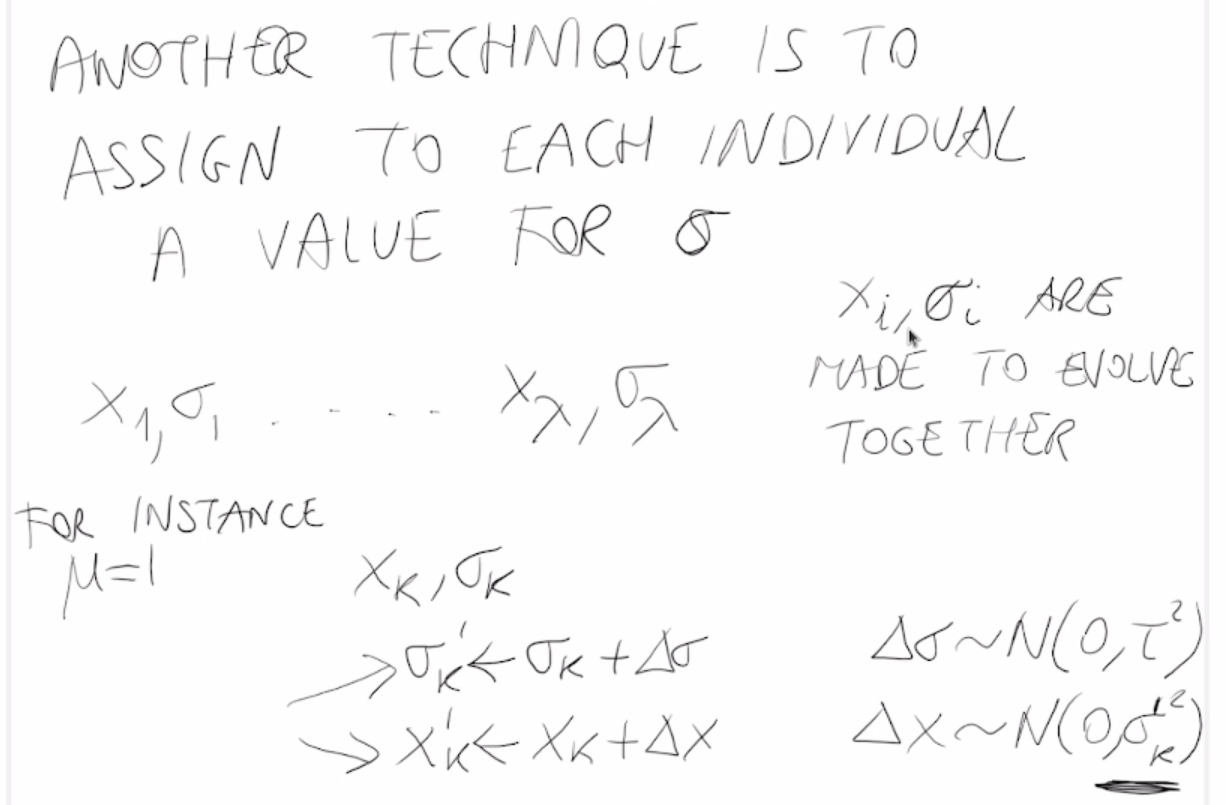 ANOTHER TECHNIQUE IS TO
ASSIGN TO EACH INDIVIDUAL
A VALUE FOR σ
x₁, σ₁ . - . . . - x_λ, σ_λ
x_i, σ_i ARE
MADE TO EVOLVE
TOGETHER
FOR INSTANCE
μ=1
x_K, σ_K
→ σ'_K ← σ_K + Δσ
Δσ ~ N(0, τ²)
→ x'_K ← x_K + Δx
Δx ~ N(0, σ'_K²)